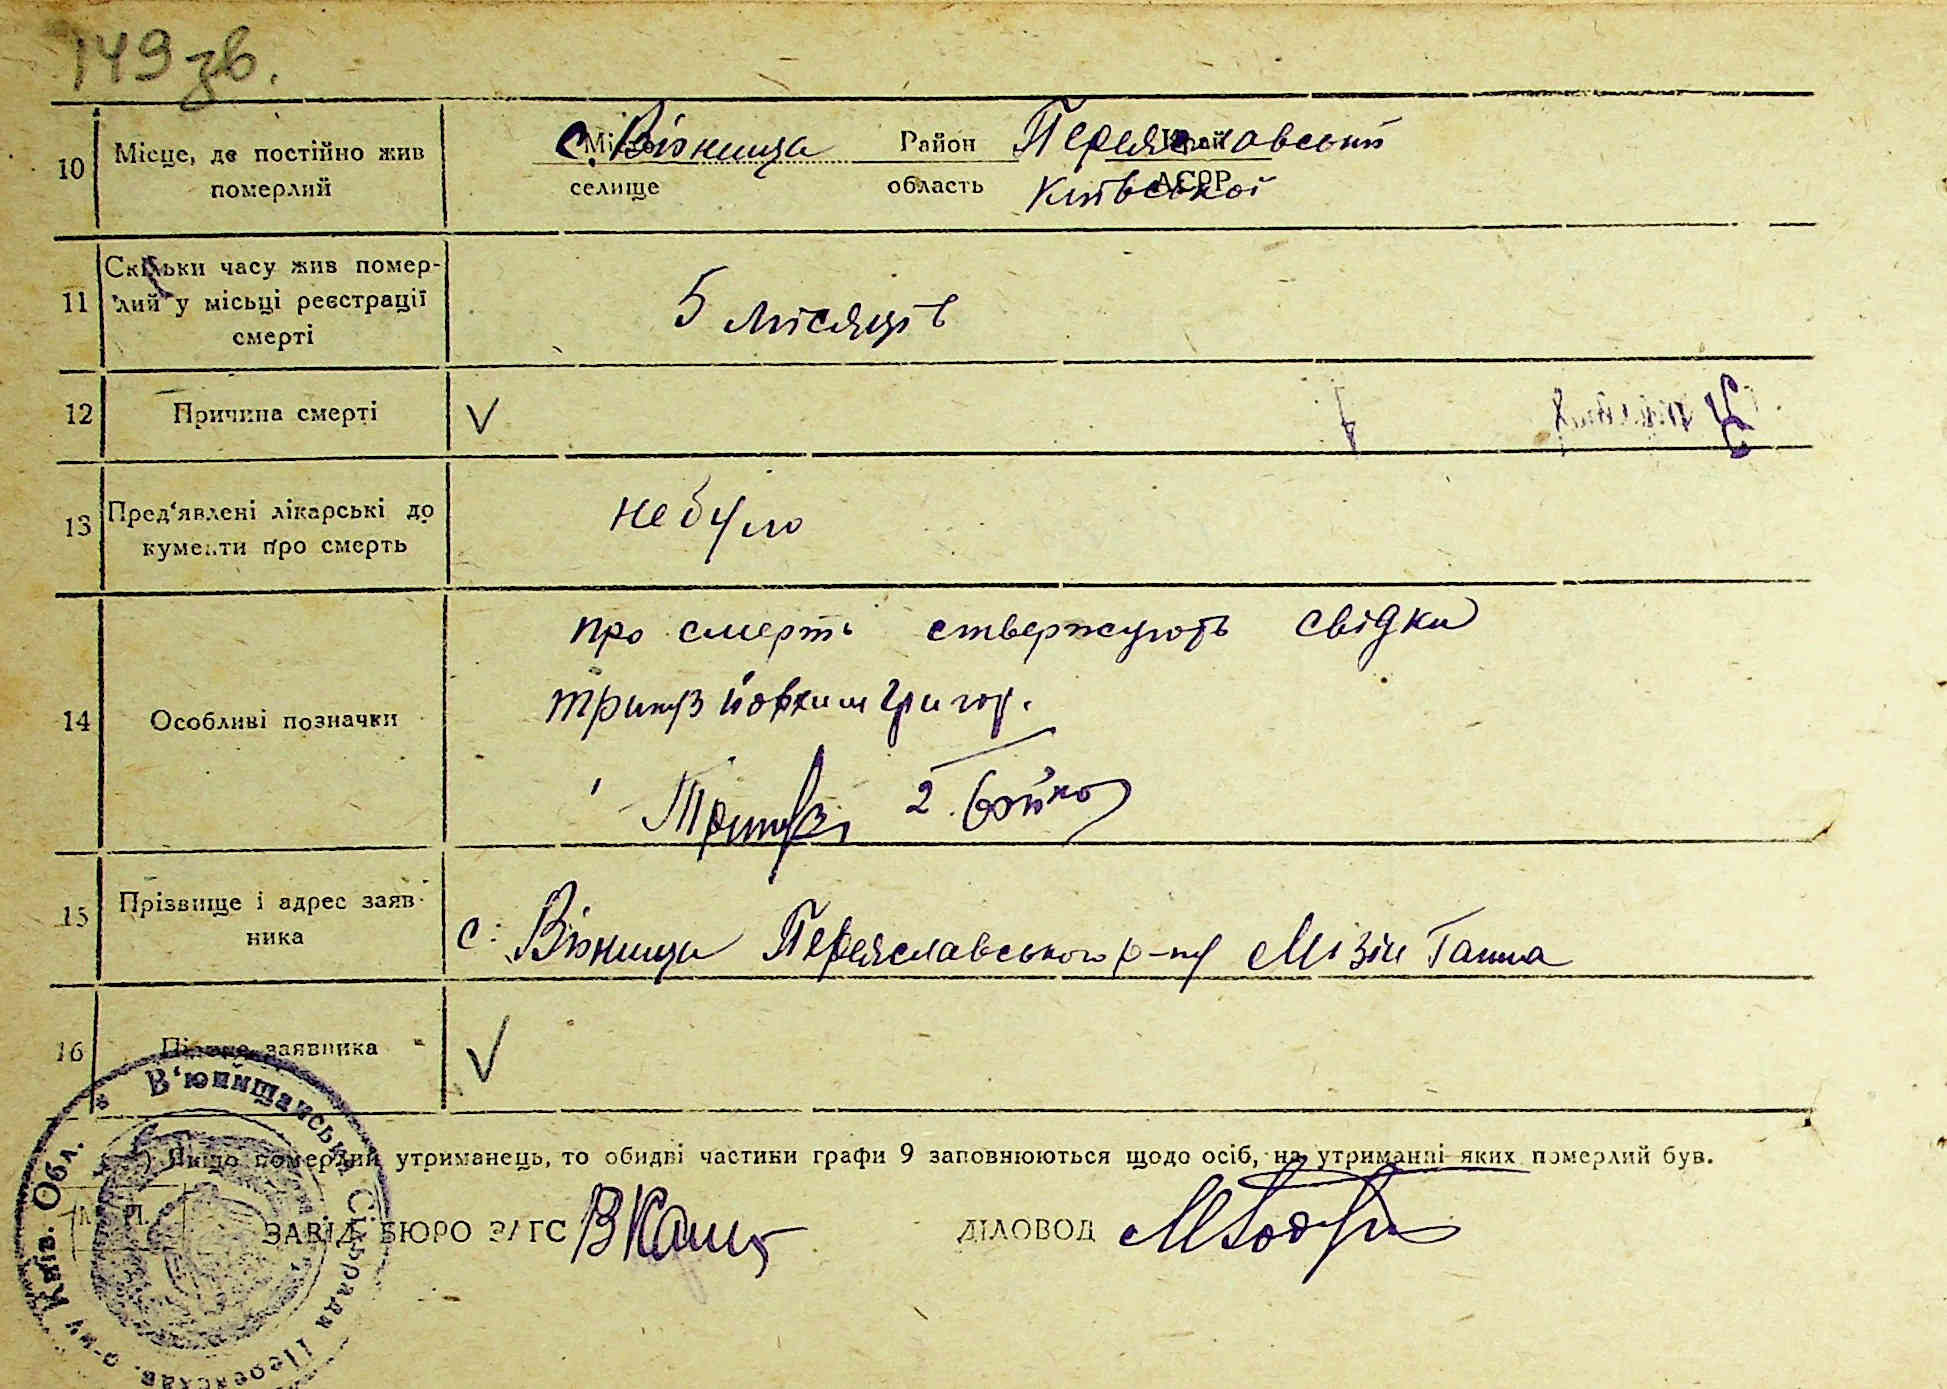 149 зв.
10 Місце, де постійно жив померлий
с. Вюнища Район Переяславський Край
селище область Київської АСРР
11 Скільки часу жив помер-
лий у місьці реєстрації
смерті
5 місяців
12 Причина смерті V
13 Пред'явлені лікарські до
кументи про смерть
не було
14 Особливі позначки
про смерть ствержують свідки
Йовхим Григор.
2. Бойко
15 Прізвище і адрес заяв-
ника
с. Вюнища Переяславського р-ну Мізін Ганна
16 Підпис заявника V
В'юнищанська Сільрада Переяслав. р-ну Київ. Обл.
*) Якщо померлий утриманець, то обидві частини графи 9 заповнюються щодо осіб, на утриманні яких померлий був.
М. П.
ЗАВІД. БЮРО ЗАГС ДІЛОВОД